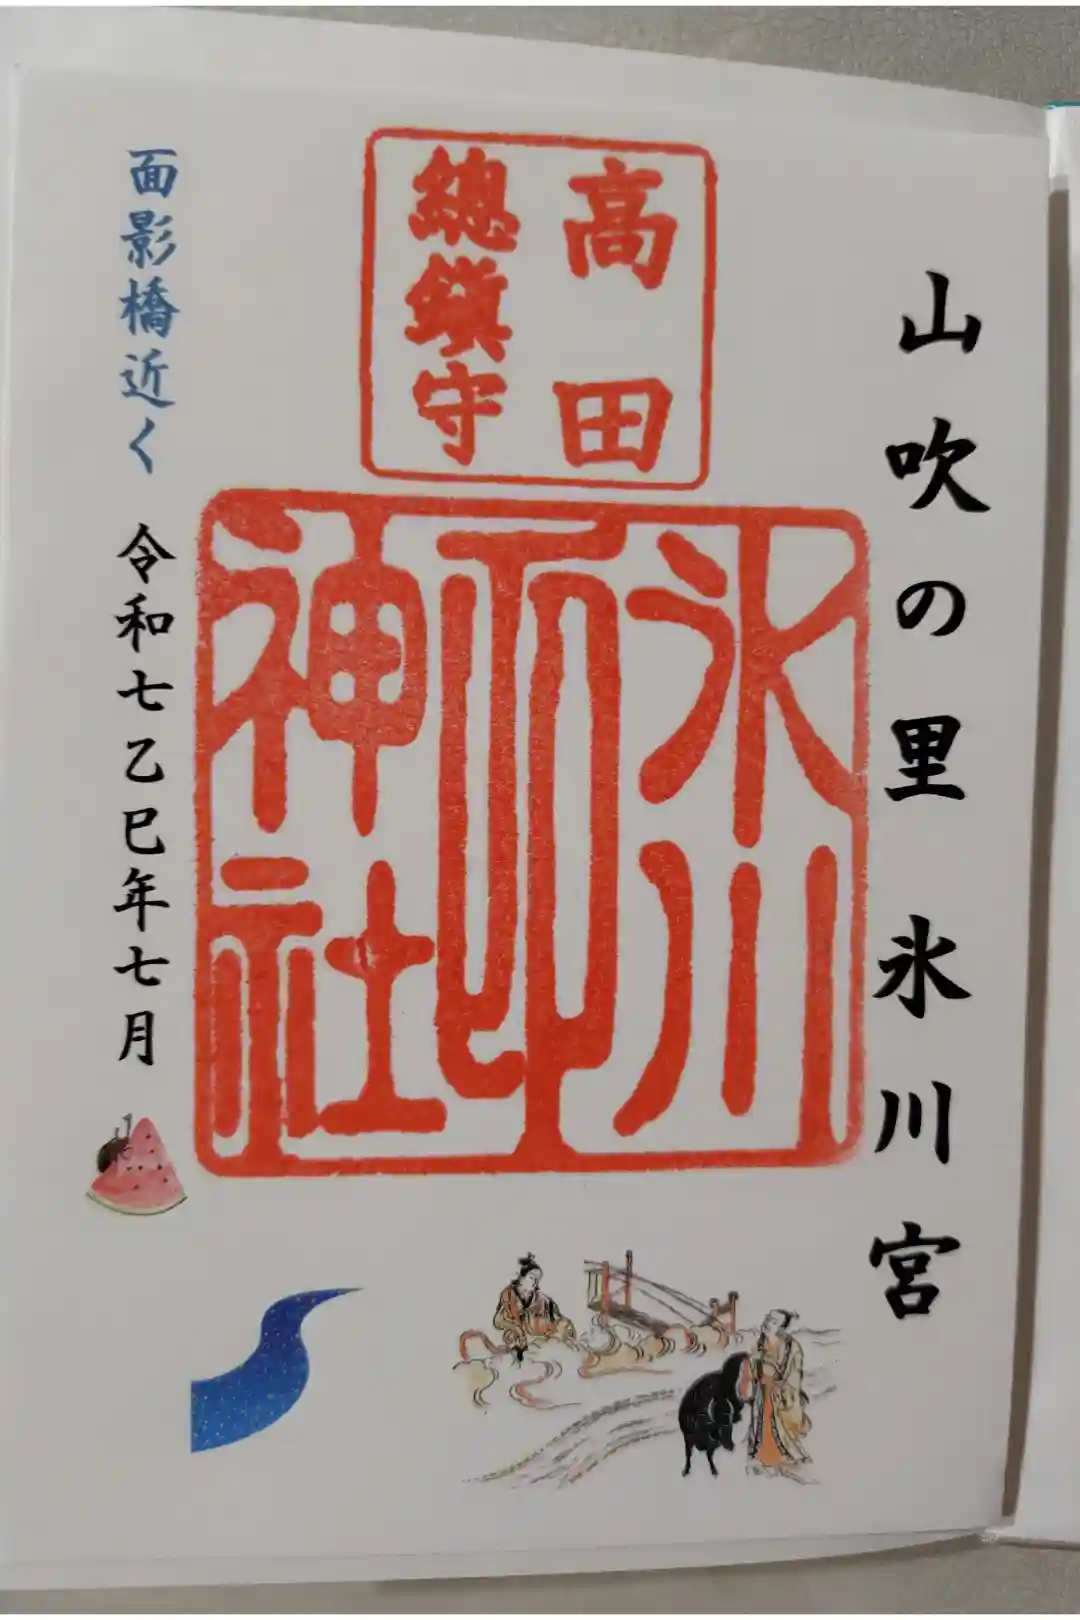 山吹の里 氷川宮
高田
總鎭守
氷川
神社
面影橋近く 令和七乙巳年七月